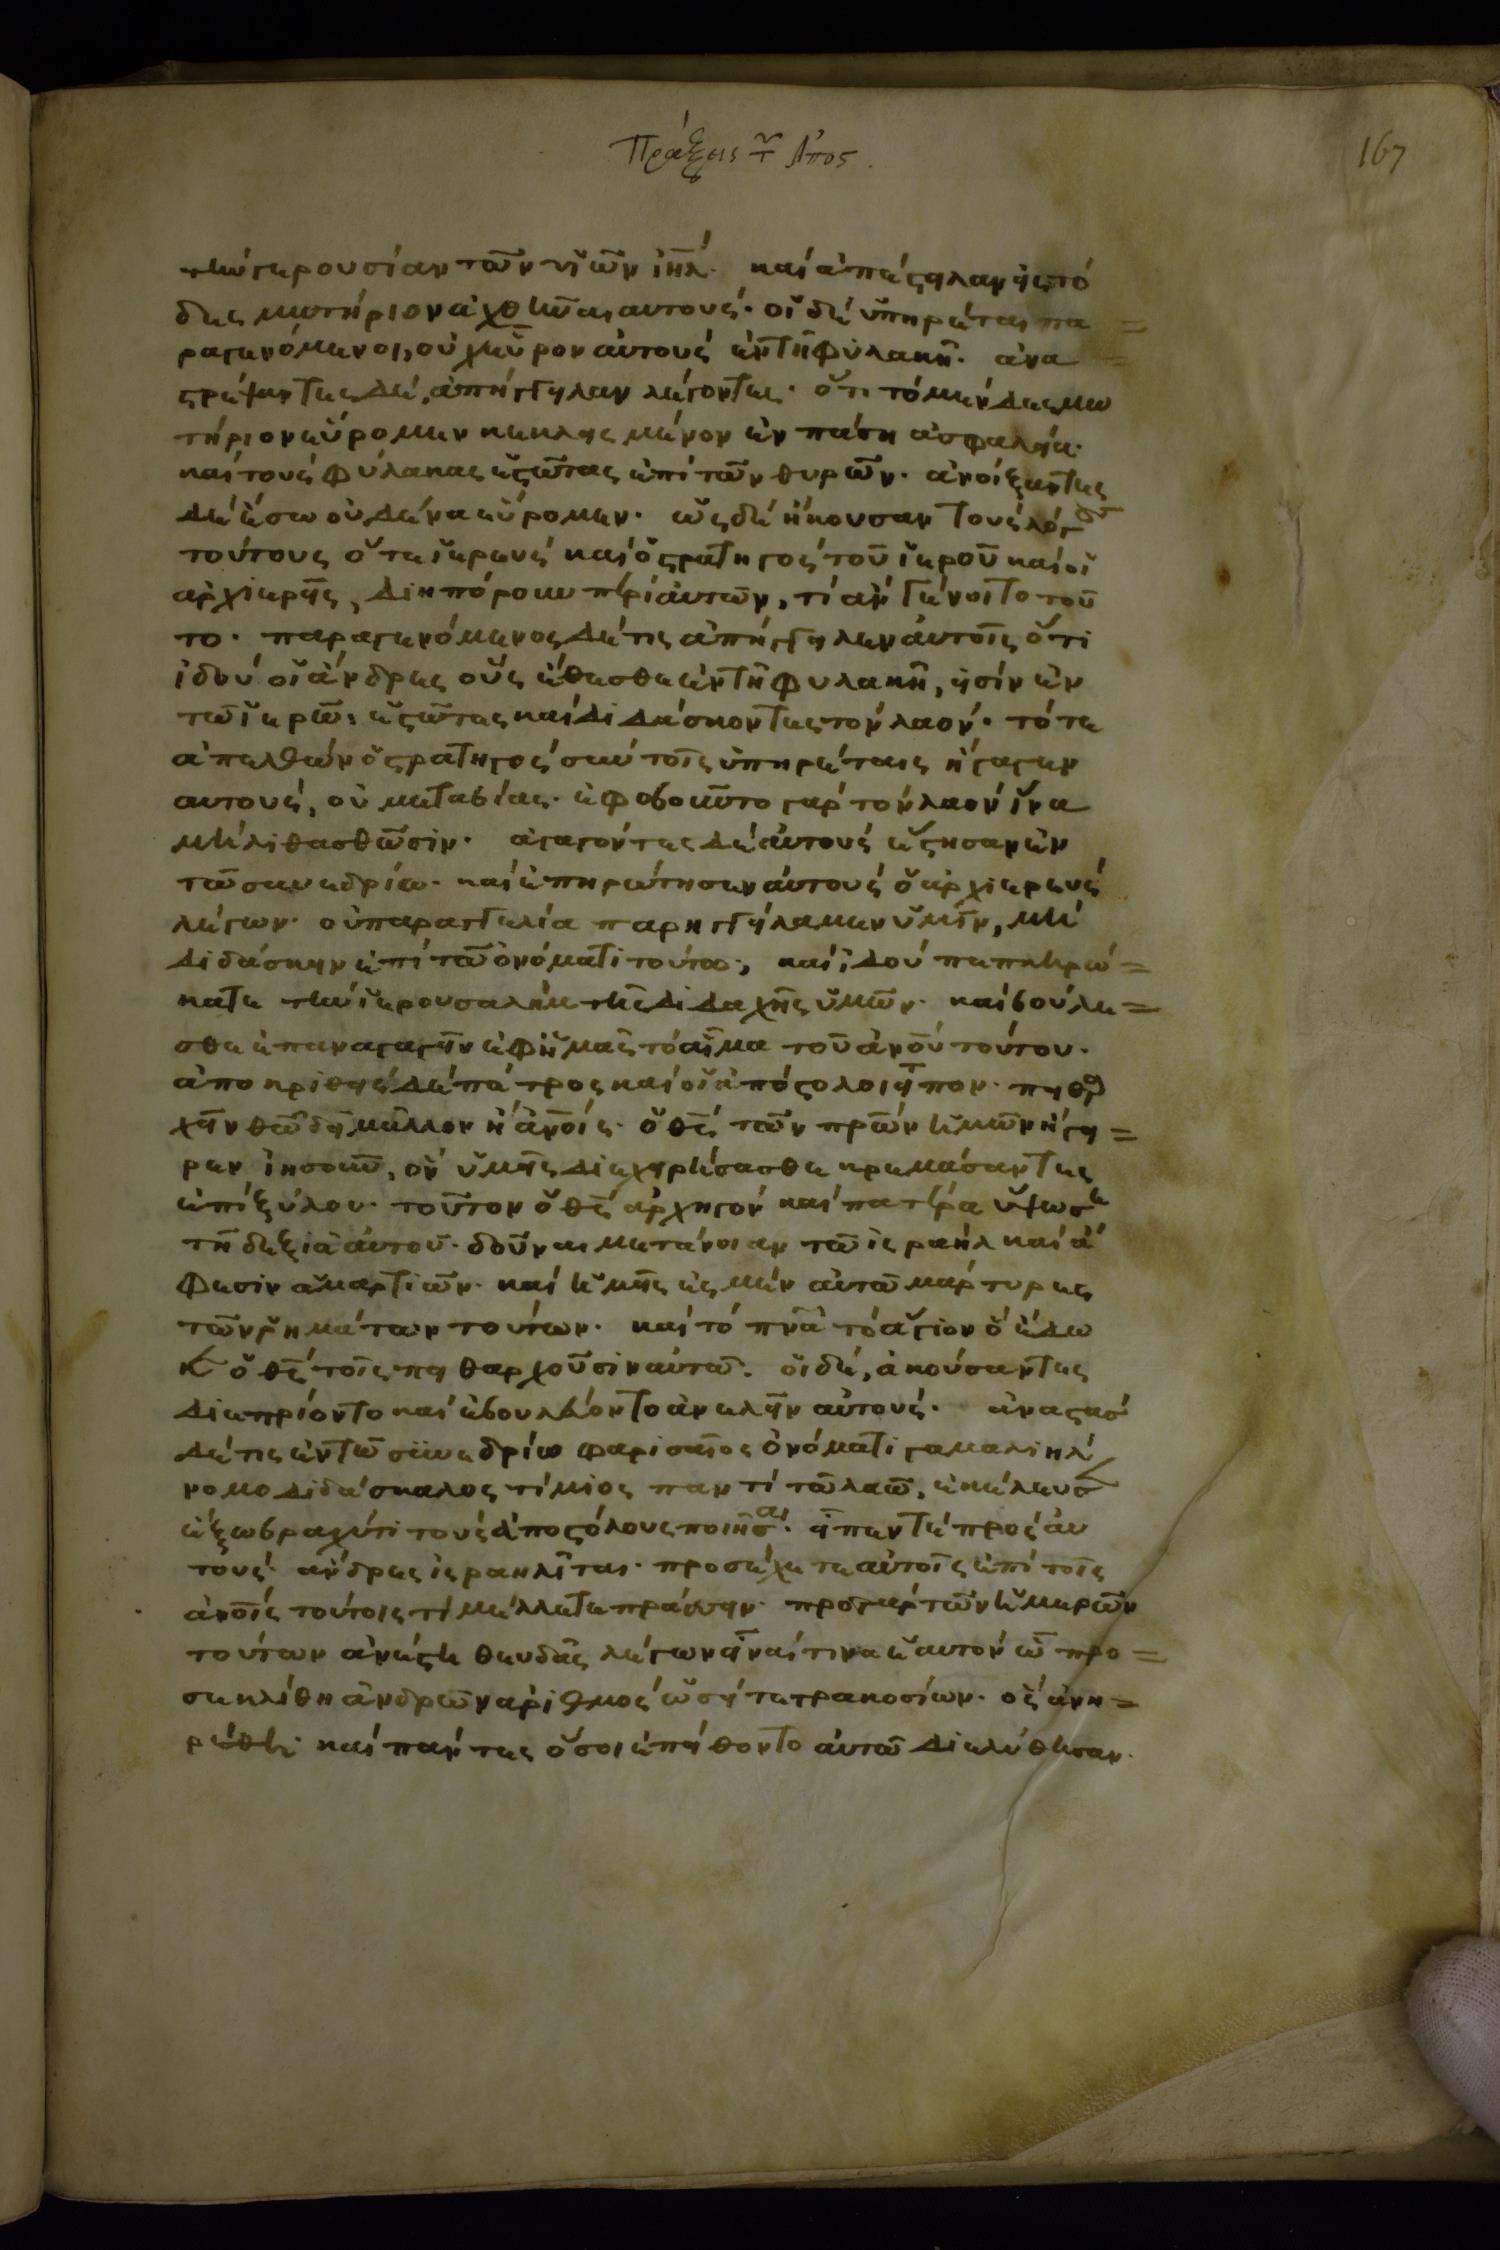 Πράξεις τ῀ Ἀπος.
167
τὴν γερουσίαν τῶν υἱῶν ἰη̅λ· καὶ ἀπέστειλαν εἰς τὸ
δεσμωτήριον ἀχθῆναι αὐτούς· οἱ δὲ ὑπηρέται πα
ραγενόμενοι, οὐχ εὗρον αὐτοὺς ἐν τῆ φυλακῆ· ἀνα
στρέψαντες δὲ, ἀπήγγειλαν λέγοντες· ὅτι τὸ μὲν δεσμω
τήριον εὕρομεν κεκλεισμένον ἐν πάση ἀσφαλεία·
καὶ τοὺς φύλακας ἑστῶτας ἐπὶ τῶν θυρῶν· ἀνοίξαντες
δὲ ἔσω οὐδένα εὕρομεν· ὡς δὲ ἤκουσαν τοὺς λόγους
τούτους ὅ τε ἱερεὺς καὶ ὁ στρατηγὸς τοῦ ἱεροῦ καὶ οἱ
ἀρχιερεῖς, διηπόρουν περὶ αὐτῶν, τί ἂν γένοιτο τοῦ
το· παραγενόμενος δέ τις ἀπήγγειλεν αὐτοῖς ὅτι
ἰδοὺ οἱ ἄνδρες οὓς ἔθεσθε ἐν τῆ φυλακῆ, εἰσὶν ἐν
τῶ ἱερῶ· ἑστῶτες καὶ διδάσκοντες τὸν λαόν· τότε
ἀπελθὼν ὁ στρατηγὸς σὺν τοῖς ὑπηρέταις ἤγαγεν
αὐτούς, οὐ μετὰ βίας· ἐφοβοῦντο γὰρ τὸν λαὸν ἵνα
μὴ λιθασθῶσιν· ἀγαγόντες δὲ αὐτοὺς ἔστησαν ἐν
τῶ συνεδρίω· καὶ ἐπηρώτησεν αὐτοὺς ὁ ἀρχιερεὺς
λέγων· οὐ παραγγελία παρηγγείλαμεν ὑμῖν, μὴ
διδάσκειν ἐπὶ τῶ ὀνόματι τούτω; καὶ ἰδοὺ πεπληρώ
κατε τὴν ἱερουσαλὴμ τῆς διδαχῆς ὑμῶν· καὶ βούλε
σθε ἐπαναγαγεῖν ἐφ' ἡμᾶς τὸ αἷμα τοῦ ἀν̅ου τούτου·
ἀποκριθεὶς δὲ πέτρος καὶ οἱ ἀπόστολοι εἶπον· πειθαρ
χεῖν θεῶ δεῖ μᾶλλον ἢ ἀν̅οις· ὁ θ̅ς τῶν πρ̅ων ἡμῶν ἤγει
ρεν ἰησοῦν, ὃν ὑμεῖς διεχειρίσασθε κρεμάσαντες
ἐπὶ ξύλου· τοῦτον ὁ θ̅ς ἀρχηγὸν καὶ πατέρα ὕψωσε
τῆ δεξιᾶ αὐτοῦ· δοῦναι μετάνοιαν τῶ ἰσραὴλ καὶ ἄ
φεσιν ἁμαρτιῶν· καὶ ἡμεῖς ἐσμὲν αὐτῶ μάρτυρες
τῶν ῥημάτων τούτων· καὶ τὸ πν̅α τὸ ἅγιον ὃ ἔδω
κεν ὁ θ̅ς τοῖς πειθαρχοῦσιν αὐτῶ· οἱ δὲ, ἀκούσαντες
διεπρίοντο καὶ ἐβουλεύοντο ἀνελεῖν αὐτούς· ἀναστὰς
δέ τις ἐν τῶ συνεδρίω φαρισαῖος ὀνόματι γαμαλιὴλ
νομοδιδάσκαλος τίμιος παντὶ τῶ λαῶ, ἐκέλευσεν
ἔξω βραχύ τι τοὺς ἀποστόλους ποιῆσαι· εἶπεν τὲ πρὸς αὐ
τούς· ἄνδρες ἰσραηλῖται· προσέχετε αὐτοῖς ἐπὶ τοῖς
ἀν̅οις τούτοις τί μέλλετε πράσσειν· πρὸ γὰρ τῶν ἡμερῶν
τούτων ἀνέστη θευδᾶς λέγων εἶναί τινα ἑαυτὸν ὧ προ
σεκλήθη ἀνδρῶν ἀριθμὸς ὡσεὶ τετρακοσίων· ὃς ἀνη
ρέθη· καὶ πάντες ὅσοι ἐπείθοντο αὐτῶ διελύθησαν·